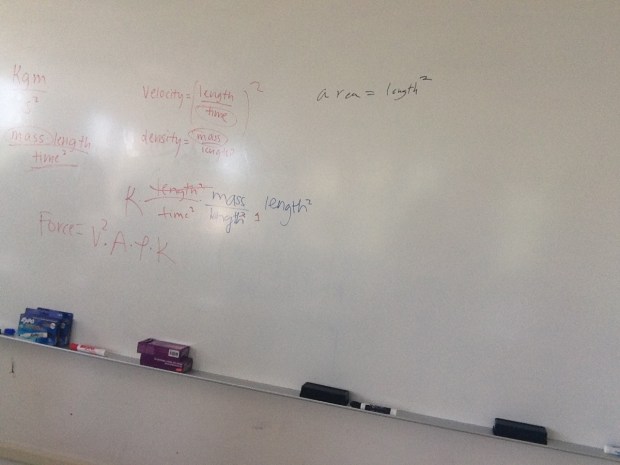 Kgm
s²
mass length
time²
velocity = (length
time)²
density = mass
area = length²
K length² mass length²
time² length³ 1
Force = V².A.ρ.K